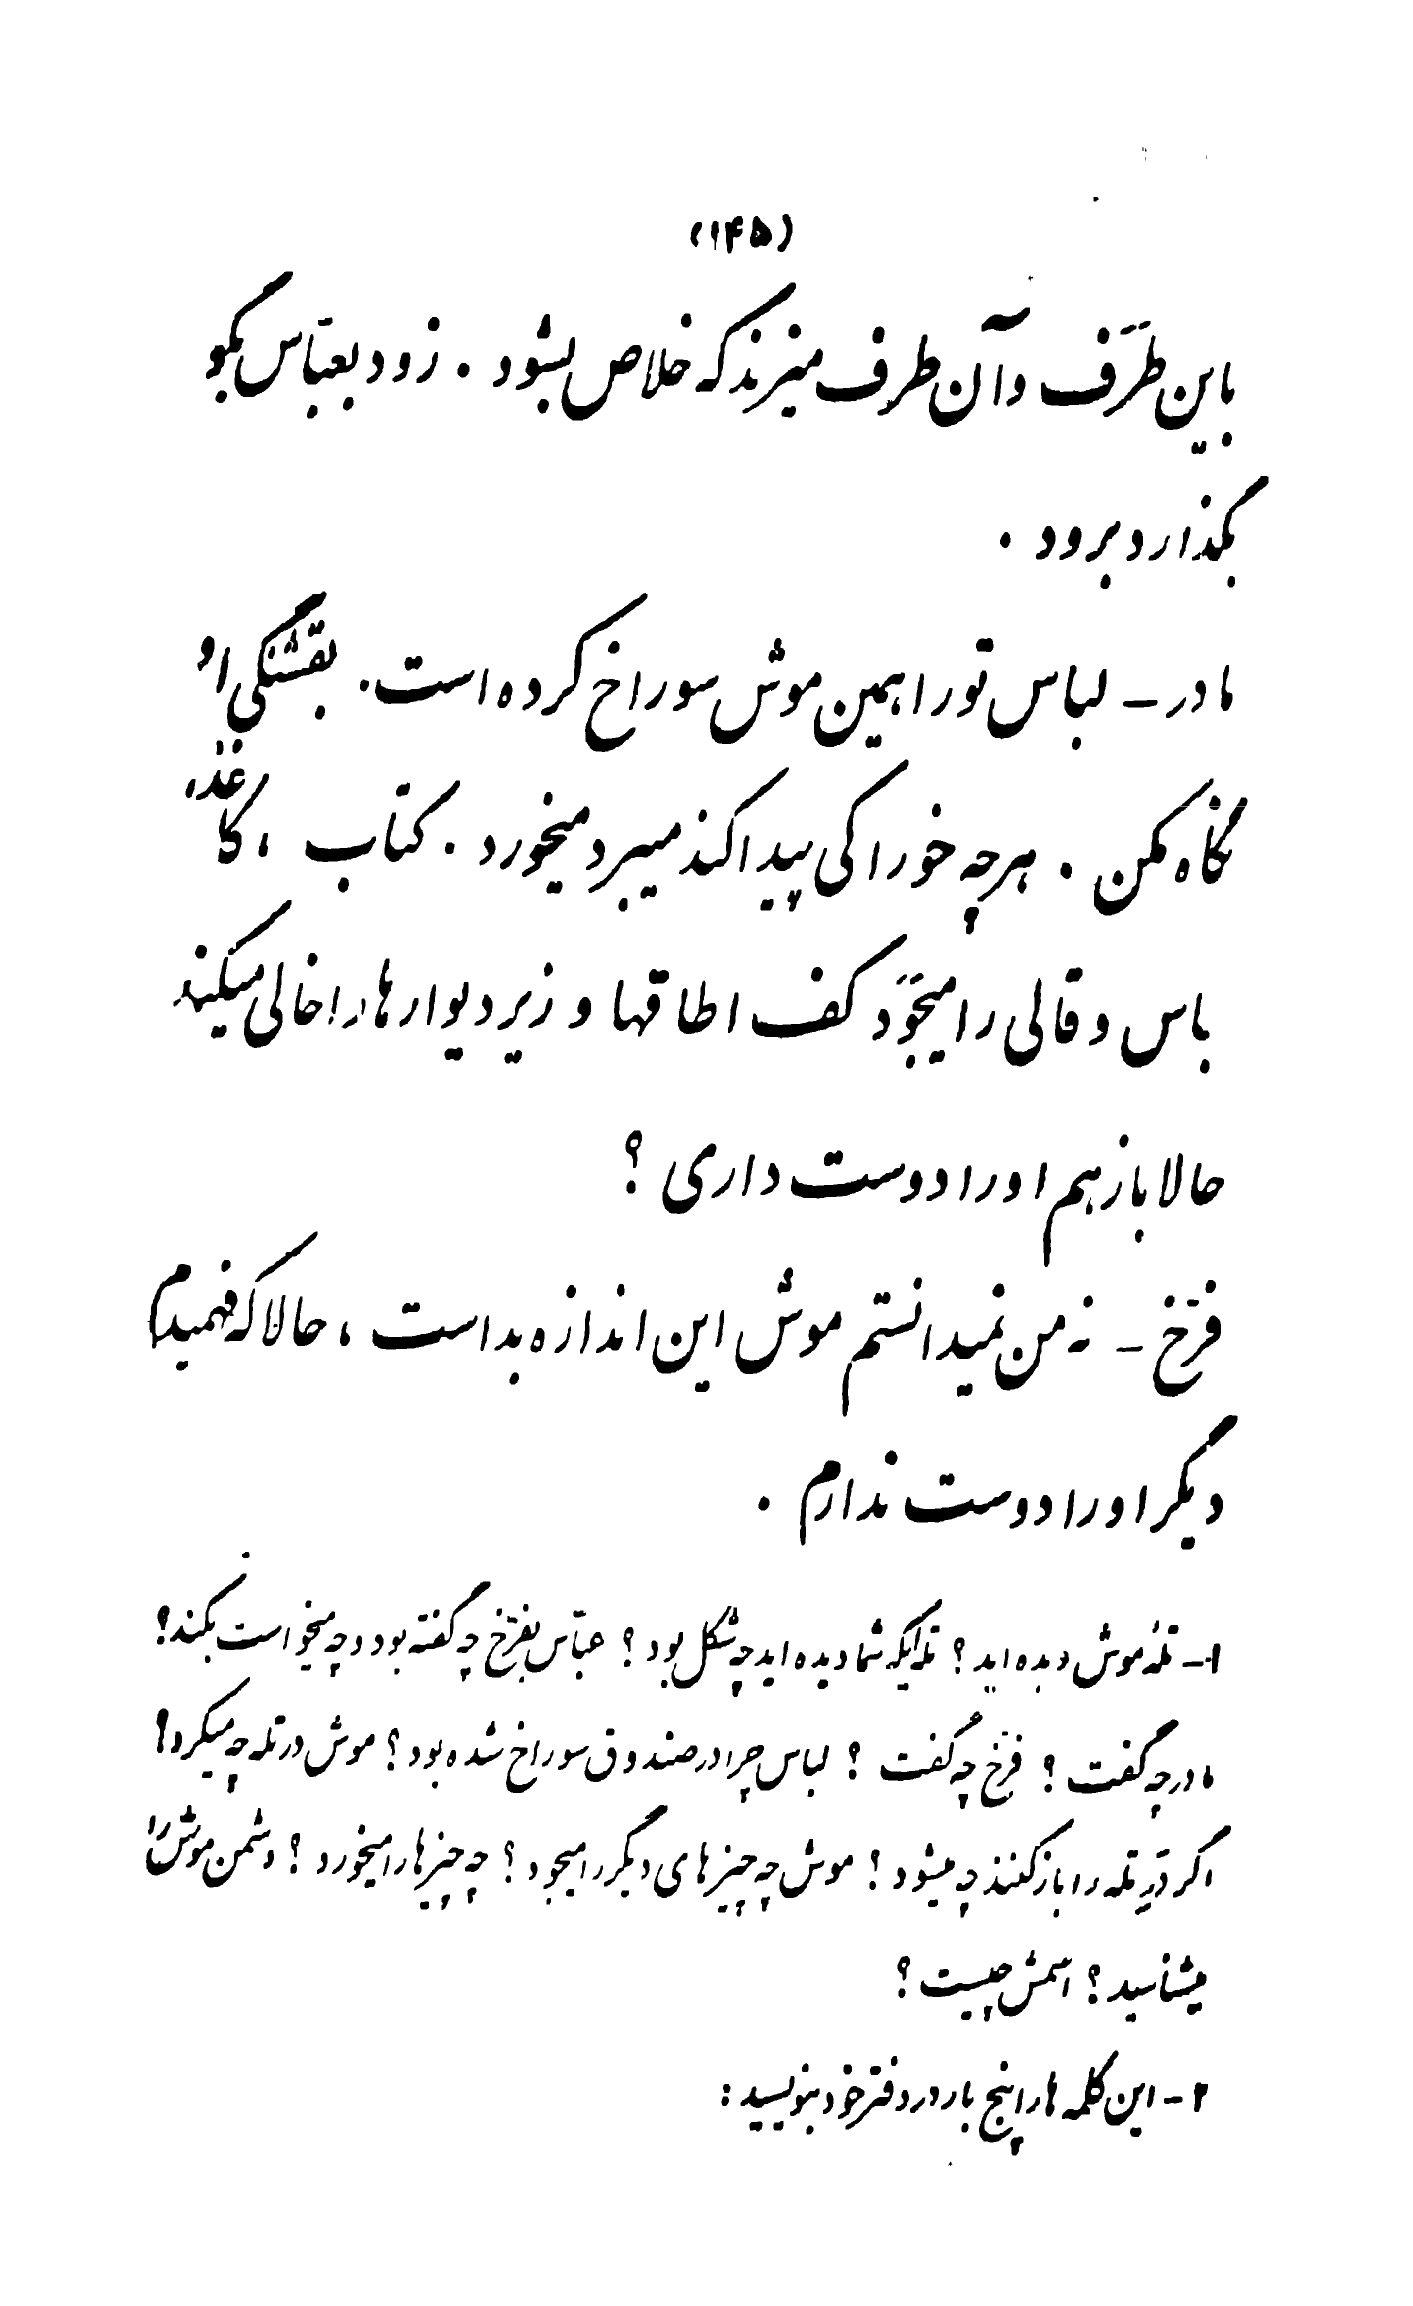 (۱۴۵)
باین طَرَف و آن طرف میزند که خلاص بشود . زود بعبّاس بگو
بگذارد برود .
مادر ـ لباس تو را همین موش سوراخ کرده است . بقشنگی او
نگاه مکن . هر چه خوراکی پیدا کند میبرد میخورد . کتاب ، کاغذ،
باس و قالی را میجَوَد کف اطاقها و زیر دیوارها را خالی میکند
حالا باز هم او را دوست داری ؟
فرّخ ـ نه من نمیدانستم موش این اندازه بد است ، حالا که فهمیدم
دیگر او را دوست ندارم .
۱ـ تلهٔ موش دیده اید ؟ تله ایکه شما دیده اید چه شکل بود ؟ عبّاس بفرّخ چه گفته بود و چه میخواست بکند ؟
مادر چه گفت ؟ فرّخ چه گفت ؟ لباس چرا در صندوق سوراخ شده بود ؟ موش در تله چه میکرد ؟
اگر دَرِ تله را باز کنند چه میشود ؟ موش چه چیزهای دیگر را میجود ؟ چه چیزها را میخورد ؟ دشمن موش را
میشناسید ؟ اسمش چیست ؟
۲ـ این کلمه ها را پنج بار در دفتر خود بنویسید :